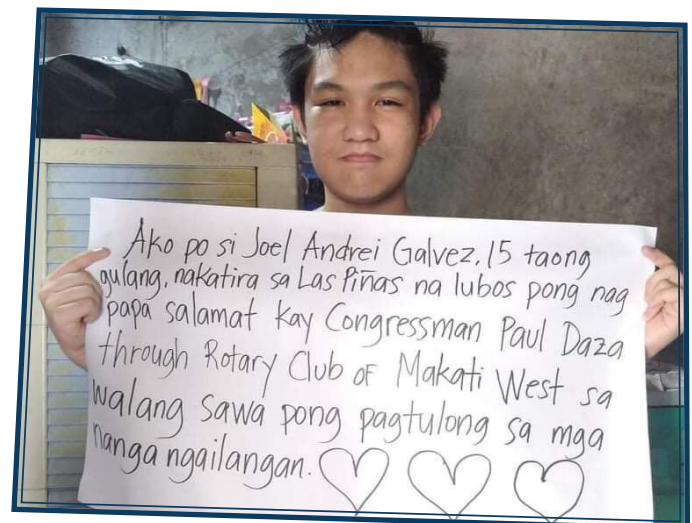 Ako po si Joel Andrei Galvez, 15 taong
gulang, nakatira sa Las Piñas na lubos pong nag
papa salamat kay Congressman Paul Daza
through Rotary Club of Makati West sa
walang sawa pong pagtulong sa mga
nanga ngailangan.